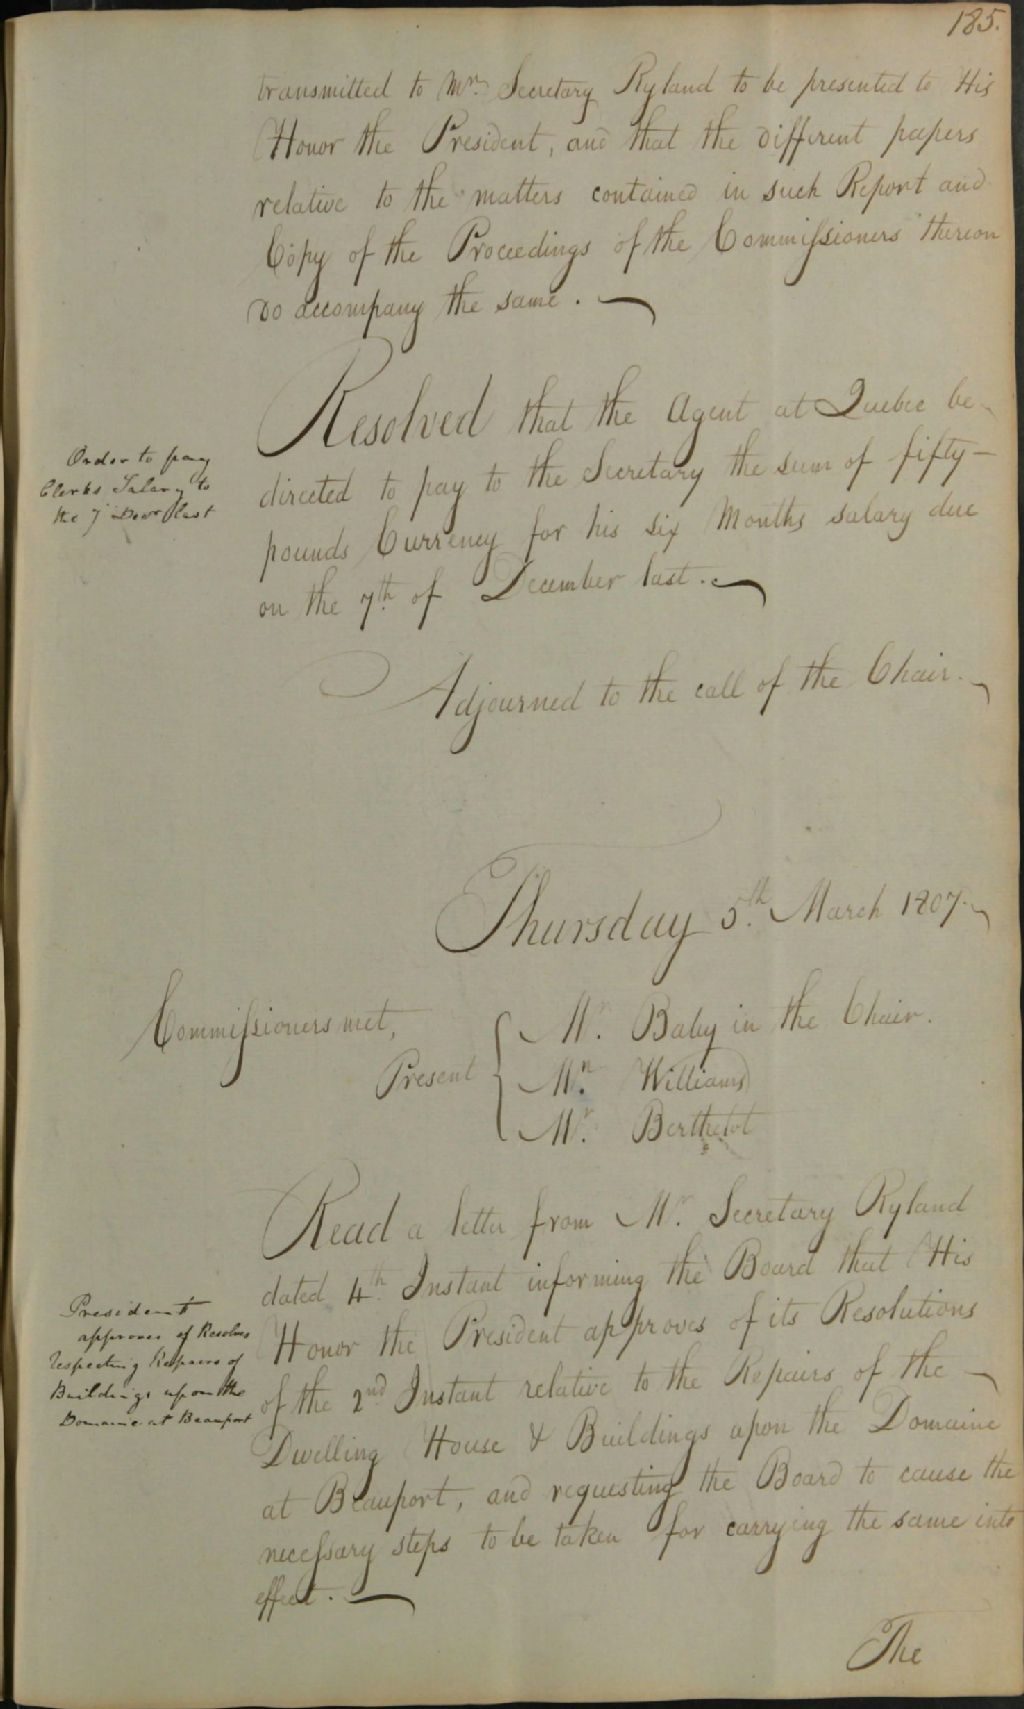 185.
transmitted to Mr. Secretary Ryland to be presented to His
Honor the President, and that the different papers
relative to the matters contained in such Report and
Copy of the Proceedings of the Commissioners thereon
do accompany the same.
Order to pay
Clerks Salary to
the 7 Decr last
Resolved that the Agent at Quebec be
directed to pay to the Secretary the sum of fifty
pounds Currency for his six Months salary due
on the 7th of December last.
Adjourned to the call of the Chair.
Thursday 5th. March 1807.
Commissioners met,
Present
Mr. Baby in the Chair.
Mr. Williams
Mr. Berthelot
Read a letter from Mr. Secretary Ryland
dated 4th Instant informing the Board that His
Honor the President approves of its Resolutions
of the 2nd Instant relative to the Repairs of the
Dwelling House & Buildings upon the Domaine
at Beauport, and requesting the Board to cause the
necessary steps to be taken for carrying the same into
effect.
President
approves of Resolves
respecting Repairs of
Buildings upon the
Domaine at Beauport
The